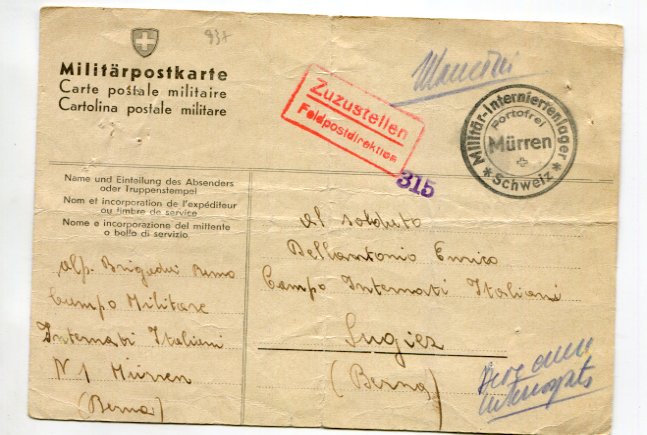 937
Militärpostkarte
Carte postale militaire
Cartolina postale militare
Zuzustellen
Feldpostdirektion
315
Militär-Interniertenlager
Portofrei
Mürren
* Schweiz *
Name und Einteilung des Absenders
oder Truppenstempel
Nom et incorporation de l'expéditeur
ou timbre de service
Nome e incorporazione del mittente
o bollo di servizio.
alp. Brigadui Remo
Campo Militare
Internati Italiani
N 1 Mürren
(Berna)
Al soldato
Bellantonio Enrico
Campo Internati Italiani
Sugiez
(Berna)